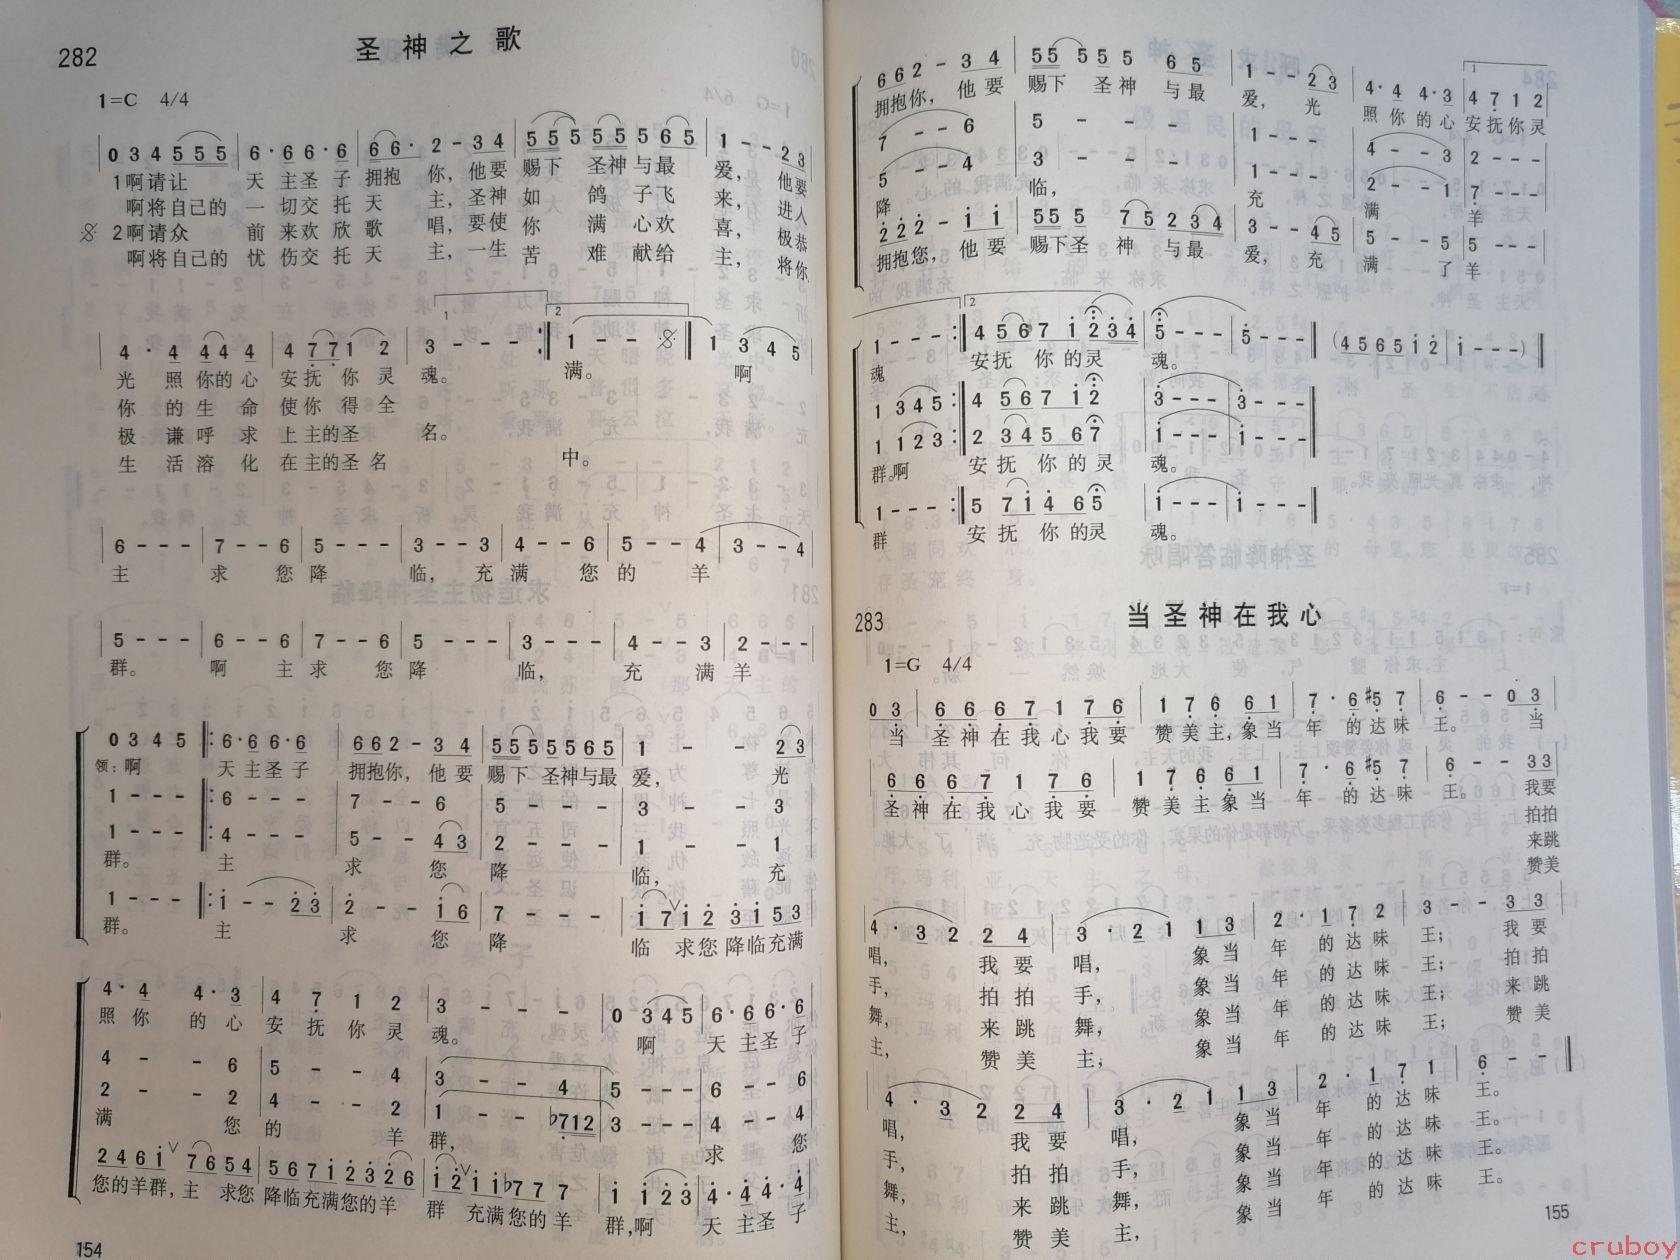 282
圣神之歌
1=C 4/4
0 3 4 5 5 5 | 6· 6 6· 6 | 6 6· 2 - 3 4 | 5 5 5 5 5 5 5 6 5 | 1 - - 2 3
1啊请让 天主圣子 拥抱你,他要 赐下 圣神与最 爱, 他要
啊将自己的 一切交托天 主,圣神 如 鸽子飞 来, 进入
2啊请众 前来欢欣歌 唱,要使 你 满心欢 喜, 极恭
啊将自己的 忧伤交托天 主,一生 苦 难献给 主, 将你
4 · 4 4 4 4 | 4 7 7 1 2 | 3 - - - :‖ 1 - - ‖ 1 3 4 5
光 照你的心 安抚你灵 魂。 满。 啊
你 的生命 使你得全
极 谦呼求 上主的圣 名。
生 活溶化 在主的圣名 中。
6 - - - | 7 - - 6 | 5 - - - | 3 - - 3 | 4 - - 6 | 5 - - 4 | 3 - - 4
主 求 您 降 临, 充 满 您 的 羊
5 - - - | 6 - - 6 | 7 - - 6 | 5 - - - | 3 - - - | 4 - - 3 | 2 - - -
群。 啊 主 求 您 降 临, 充 满 羊
0 3 4 5 ‖: 6· 6 6· 6 | 6 6 2 - 3 4 | 5 5 5 5 5 5 6 5 | 1 - - 2 3
领:啊 天主圣子 拥抱你,他要 赐下 圣神与最 爱, 光
1 - - - ‖: 6 - - - | 7 - - 6 | 5 - - - | 3 - - 3
1 - - - ‖: 4 - - - | 5 - - 4 3 | 2 - - - | 1 - - 1
群。 主 求 您 降 临, 充
1 - - - ‖: 1 - - 2 3 | 2 - - 1 6 | 7 - - - | 1 7 1 2 3 1 5 3
群。 主 求 您 降 临 求您降临充满
4· 4 4· 3 | 4 7 1 2 | 3 - - - | 0 3 4 5 | 6· 6 6· 6
照你 的心 安抚你灵 魂。 啊 天主圣子
4 - - 6 | 5 - - 4 | 3 - - 4 | 5 - - - | 6 - - 6
2 - - 2 | 4 - - 2 | 1 - - ♭7 1 2 | 3 - - - | 4 - - 4
满 您 的 羊 群, 求 您
2 4 6 1 ∨ 7 6 5 4 | 5 6 7 1 2 3 2 6 | 1 2 1 1 ♭7 7 7 | 1 1 2 3 | 4· 4 4· 4
您的羊群,主 求您 降临充满您的羊 群 充满您的羊 群,啊 天主圣子
154
6 6 2 - 3 4 | 5 5 5 5 5 6 5 | 1 - - 2 3 | 4· 4 4· 3 | 4 7 1 2
拥抱你, 他要 赐下 圣神 与最 爱, 光 照你的心 安抚你灵
7 - - 6 | 5 - - - | 1 - - - | 4 - - 3 | 2 - - -
5 - - 4 | 3 - - - | 1 - - - | 2 - - 1 | 7 - - -
降 临, 充 满 羊
2 2 2 - 1 1 | 5 5 5 7 5 2 3 4 | 3 - - 4 5 | 5 - - 5 | 5 - - -
拥抱您, 他要 赐下圣 神 与最 爱, 充 满 了 羊
1 - - - :‖ 4 5 6 7 1 2 3 4 | 5 - - - | 5 - - - | (4 5 6 5 1 2 | 1 - - -) ‖
魂 安抚 你的灵 魂。
1 3 4 5 :‖ 4 5 6 7 1 2 | 3 - - - | 3 - - - ‖
1 1 2 3 :‖ 2 3 4 5 6 7 | 1 - - - | 1 - - - ‖
群。啊 安抚 你的灵 魂。
1 - - - :‖ 5 7 1 4 6 5 | 1 - - - | 1 - - - ‖
群 安抚 你的灵 魂。
283
当圣神在我心
1=G 4/4
0 3 | 6 6 6 7 1 7 6 | 1 7 6 6 1 | 7 · 6 #5 7 | 6 - - 0 3
当 圣神在我心我要 赞美主,象当 年 的达味 王。 当
6 6 6 7 1 7 6 | 1 7 6 6 1 | 7 · 6 #5 7 | 6 - - 3 3
圣神在我心我要 赞美主象当 年 的达味 王。 我要
拍拍
来跳
赞美
4 · 3 2 2 4 | 3 · 2 1 1 3 | 2 · 1 7 2 | 3 - - 3 3
唱, 我要 唱, 象当 年 的达味 王; 我要
手, 拍拍 手, 象当 年 的达味 王; 拍拍
舞, 来跳 舞, 象当 年 的达味 王; 来跳
主, 赞美 主, 象当 年 的达味 王; 赞美
4 · 3 2 2 4 | 3 · 2 1 1 3 | 2 · 1 7 1 | 6 - - ‖
唱, 我要 唱, 象当 年 的达味 王。
手, 拍拍 手, 象当 年 的达味 王。
舞, 来跳 舞, 象当 年 的达味 王。
主, 赞美 主, 象当 年 的达味 王。
155
cruboy